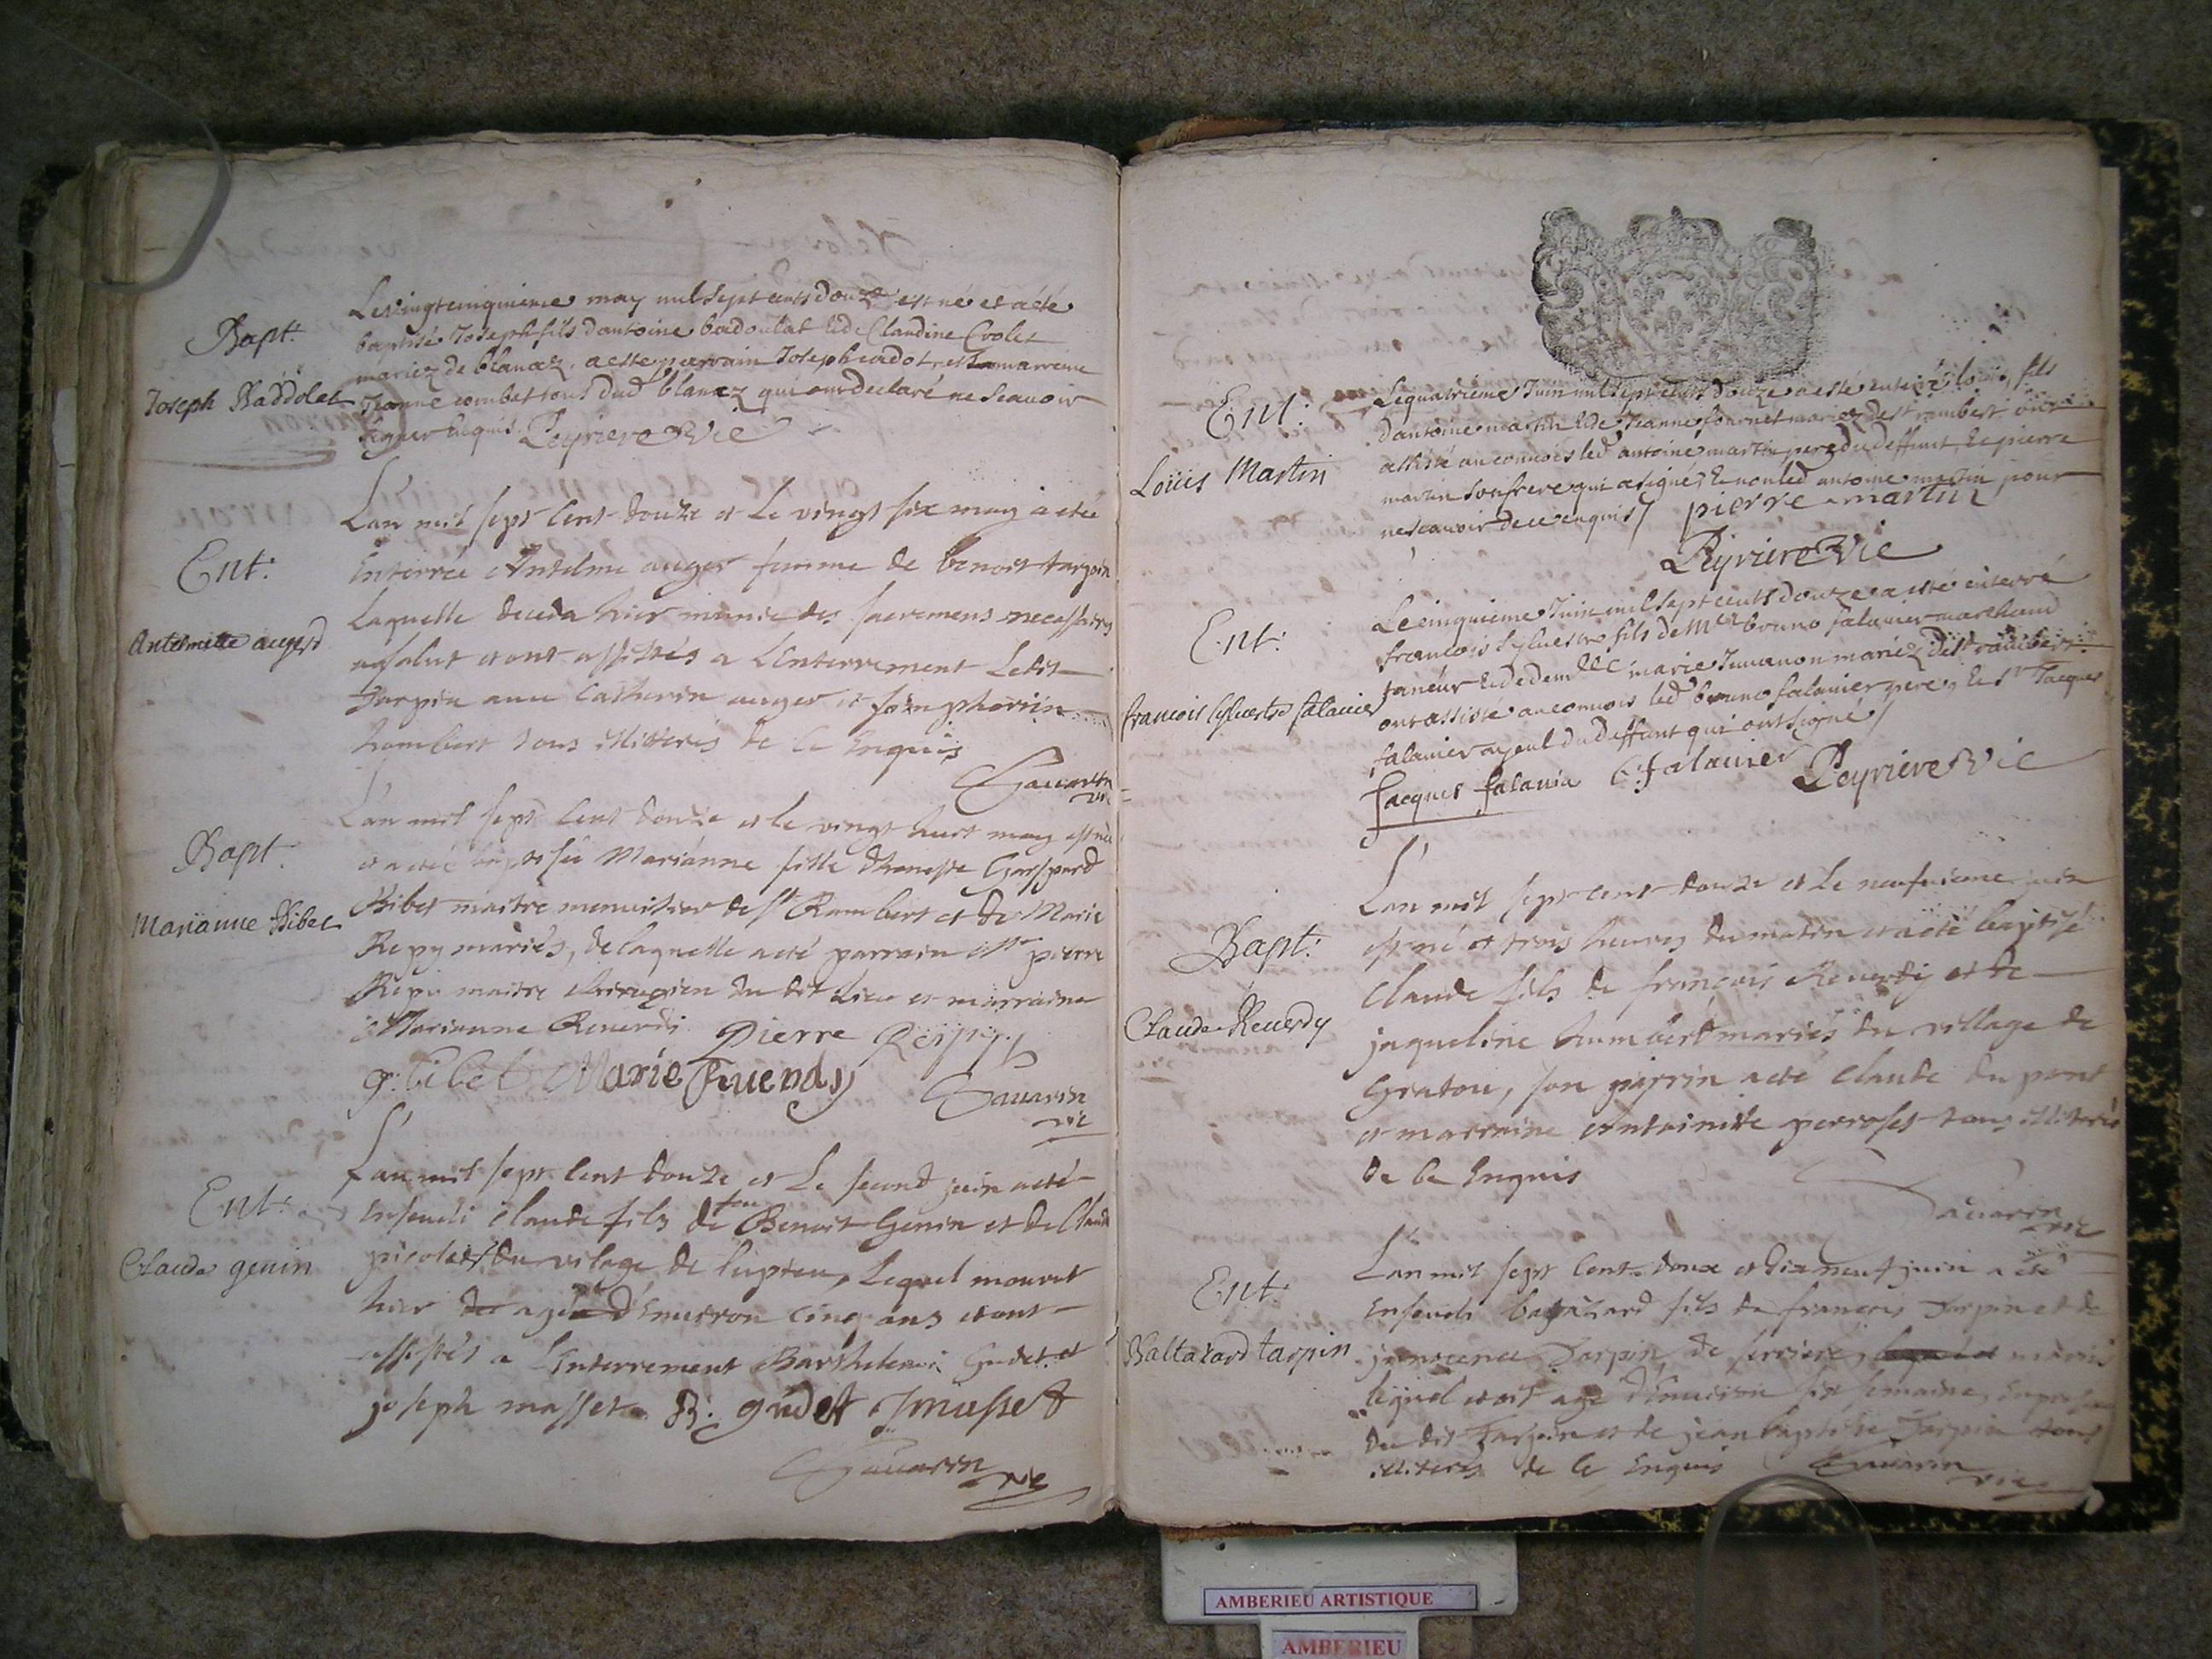 Bapt:
Joseph Baddolet
Le vingt cinquieme may mil sept cents douze est né et a été
baptisé Joseph fils d'antoine badoulat et de Claudine
mariez de blanaz, a esté parrain Joseph et marreine
Jeanne combet tous dud blanaz qui ont declaré ne scavoir
signer enquis. Peyriere vic
Ent:
Antelmette augerd
L'an mil sept cent douze et le vingt six may a eté
Enterrée Antelme auger femme de benoist tarpin
laquelle deceda hier munie des sacremens necessaires
a salut et ont assistés a L'enterrement Ledit
Tarpin avec auger et simphorin
humbert tous illiterés de ce Enquis
Savarin
vic
Bapt.
Marianne Bibet
L'an mil sept cent douze et le vingt huit may est née
et a eté baptisée Marianne fille d'honeste Gaspard
Bibet maitre menuisier de St Rambert et de Marie
Repy mariés, de laquelle a eté parrain Mre pierre
Repy maitre chirurgien du dit Lieu et marraine
Marianne Reverdi. Pierre Reipy
g. bibet Marie Ruerdy Savarin
vic
Ent:
Claude genin
L'an mil sept cent douze et Le second juin a eté
Enseveli claude fils de feu Benoit Genin et de Clauda
picolet du vilage de lupieu, Lequel mourut
hier agé d'Environ cinq ans et ont
assistés a L'Enterrement Barthelemi Gudet et
joseph masset. B. gudet Jmasset
Savarin
vic
Ent:
Loüis Martin
Le quatrième Juin mil sept cents douze a esté enterré loüis fils
d'antoine martin et de Jeanne fournet mariez de st rambert ont
assisté au convois led antoine martin pere du deffunt, et pierre
martin son frere qui a signé, et non led antoine martin pour
ne scavoir de ce enquis / pierre martin
Peyriere vic
Ent:
francois sylvestre falavier
Le cinquieme Juin mil sept cents douze a esté enterré
francois sylvestre fils de Mre bruno falavier marchand
taneur et de demlle marie Juvanon mariez de st rambert
ont assisté au convois led bruno falavier pere, et sr Jacques
falavier ayeul du deffunt qui ont signé /
Jacques falavia B. falavier Peyriere vic
Bapt:
Claude Reverdy
L'an mil sept cent douze et Le neufvieme juin
est né et trois heures du matin et a eté baptisé
Claude fils de françois Reverdy et de
jaqueline humbert mariés du village de
Gratou, son parrin a eté Claude du pont
et marraine Antoinette perroset tous illiterés
de ce Enquis
Savarin
vic
Ent:
Baltazard tarpin
L'an mil sept cent douze et dixneuf juin a eté
Enseveli baltazard fils de françois Tarpin et de
Tarpin, de serriere, mariés
lequel etoit agé d'Environ six semaine, en presence
du dit Tarpin et de jean baptiste Tarpin tous
illiterés de ce Enquis Savarin
vic
AMBERIEU ARTISTIQUE
AMBERIEU